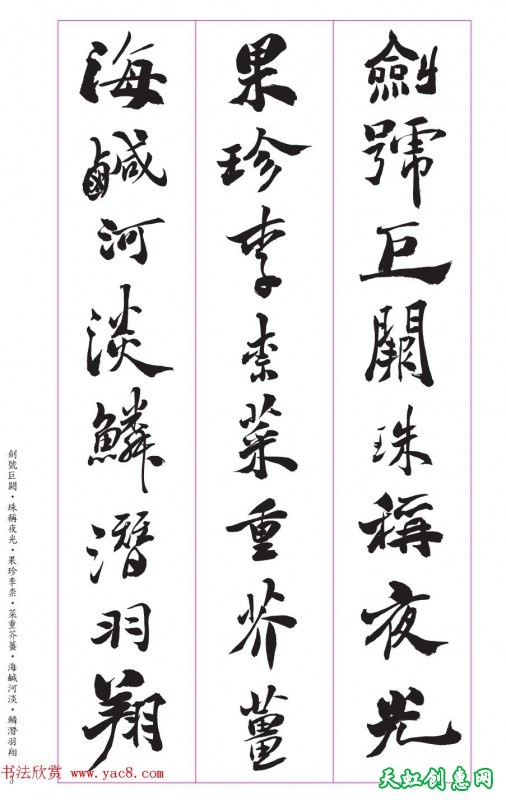 劍號巨闕珠稱夜光
果珍李柰菜重芥薑
海鹹河淡鱗潛羽翔
劍號巨闕·珠稱夜光·果珍李柰·菜重芥薑·海鹹河淡·鱗潛羽翔
3
书法欣赏 www.yac8.com
天虹创惠网